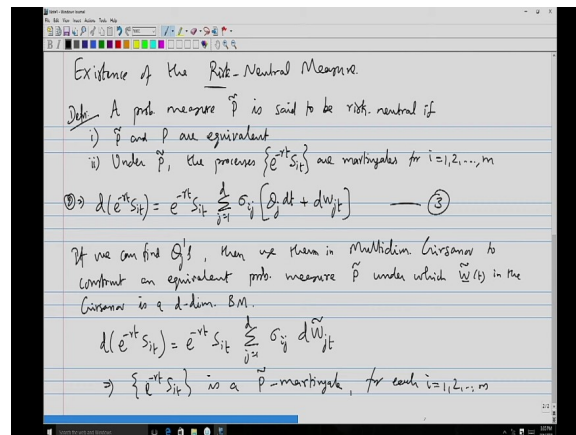 Existence of the Risk-Neutral Measure.
Defn. A prob. measure P̃ is said to be risk-neutral if
i) P̃ and P are equivalent
ii) Under P̃, the processes {e^{-rt} S_{it}} are martingales for i=1,2,...,m
⇒ d(e^{-rt} S_{it}) = e^{-rt} S_{it} \sum_{j=1}^{d} σ_{ij} [θ_j dt + dW_{jt}] —— ③
If we can find θ_j's, then use them in Multidim. Girsanov to
construct an equivalent prob. measure P̃ under which W̃(t) in the
Girsanov is a d-dim. BM.
d(e^{-rt} S_{it}) = e^{-rt} S_{it} \sum_{j=1}^{d} σ_{ij} dW̃_{jt}
⇒ {e^{-rt} S_{it}} is a P̃-martingale, for each i=1,2,...,m
2/2